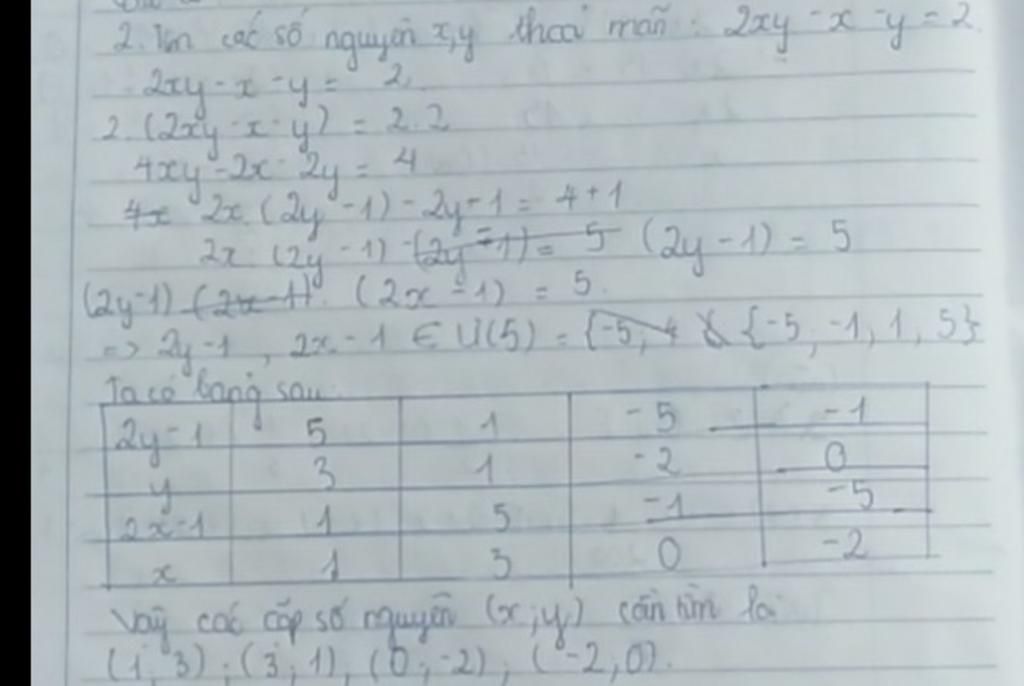 2. Tìm các số nguyên x,y thoả mãn: 2xy - x - y = 2.
2xy - x - y = 2.
2. (2xy - x - y) = 2.2
4xy - 2x - 2y = 4
4x 2x. (2y - 1) - 2y - 1 = 4 + 1
2x (2y - 1) - (2y - 1) = 5 (2y - 1) = 5
(2y-1) (2x-1). (2x - 1) = 5.
=> 2y-1, 2x-1 ∈ Ư(5) = {-5, {-5, -1, 1, 5}
Ta có bảng sau:
2y-1 5 1 -5 -1
y 3 1 -2 0
2x-1 1 5 -1 -5
x 1 3 0 -2
Vậy các cặp số nguyên (x;y) cần tìm là
(1, 3); (3, 1), (0, -2), (-2, 0).